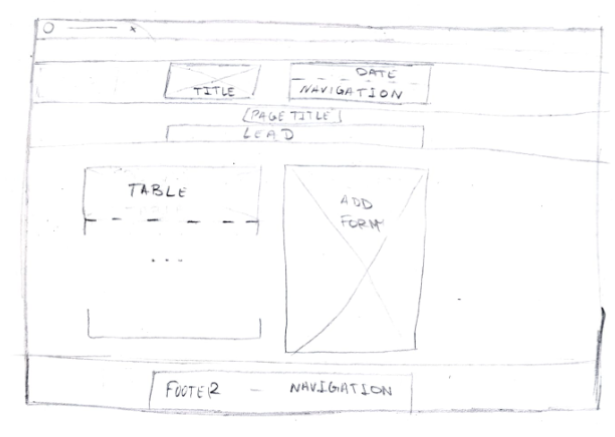 DATE
TITLE NAVIGATION
PAGE TITLE
LEAD
TABLE
ADD
FORM
...
FOOTER - NAVIGATION